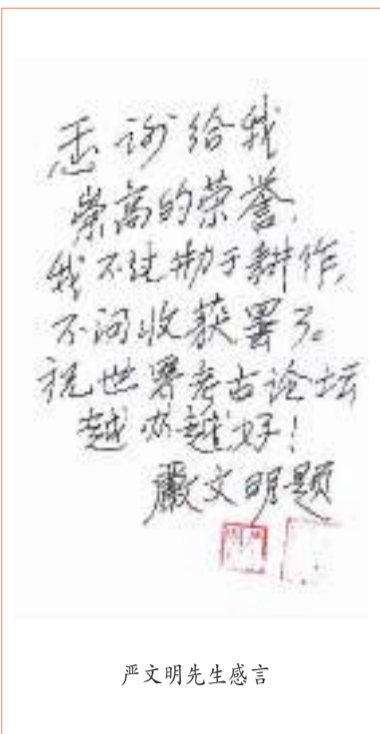 感谢给我
崇高的荣誉,
我不过勤于耕作,
不问收获罢了。
祝世界考古论坛
越办越好!
嚴文明题
严文明先生感言